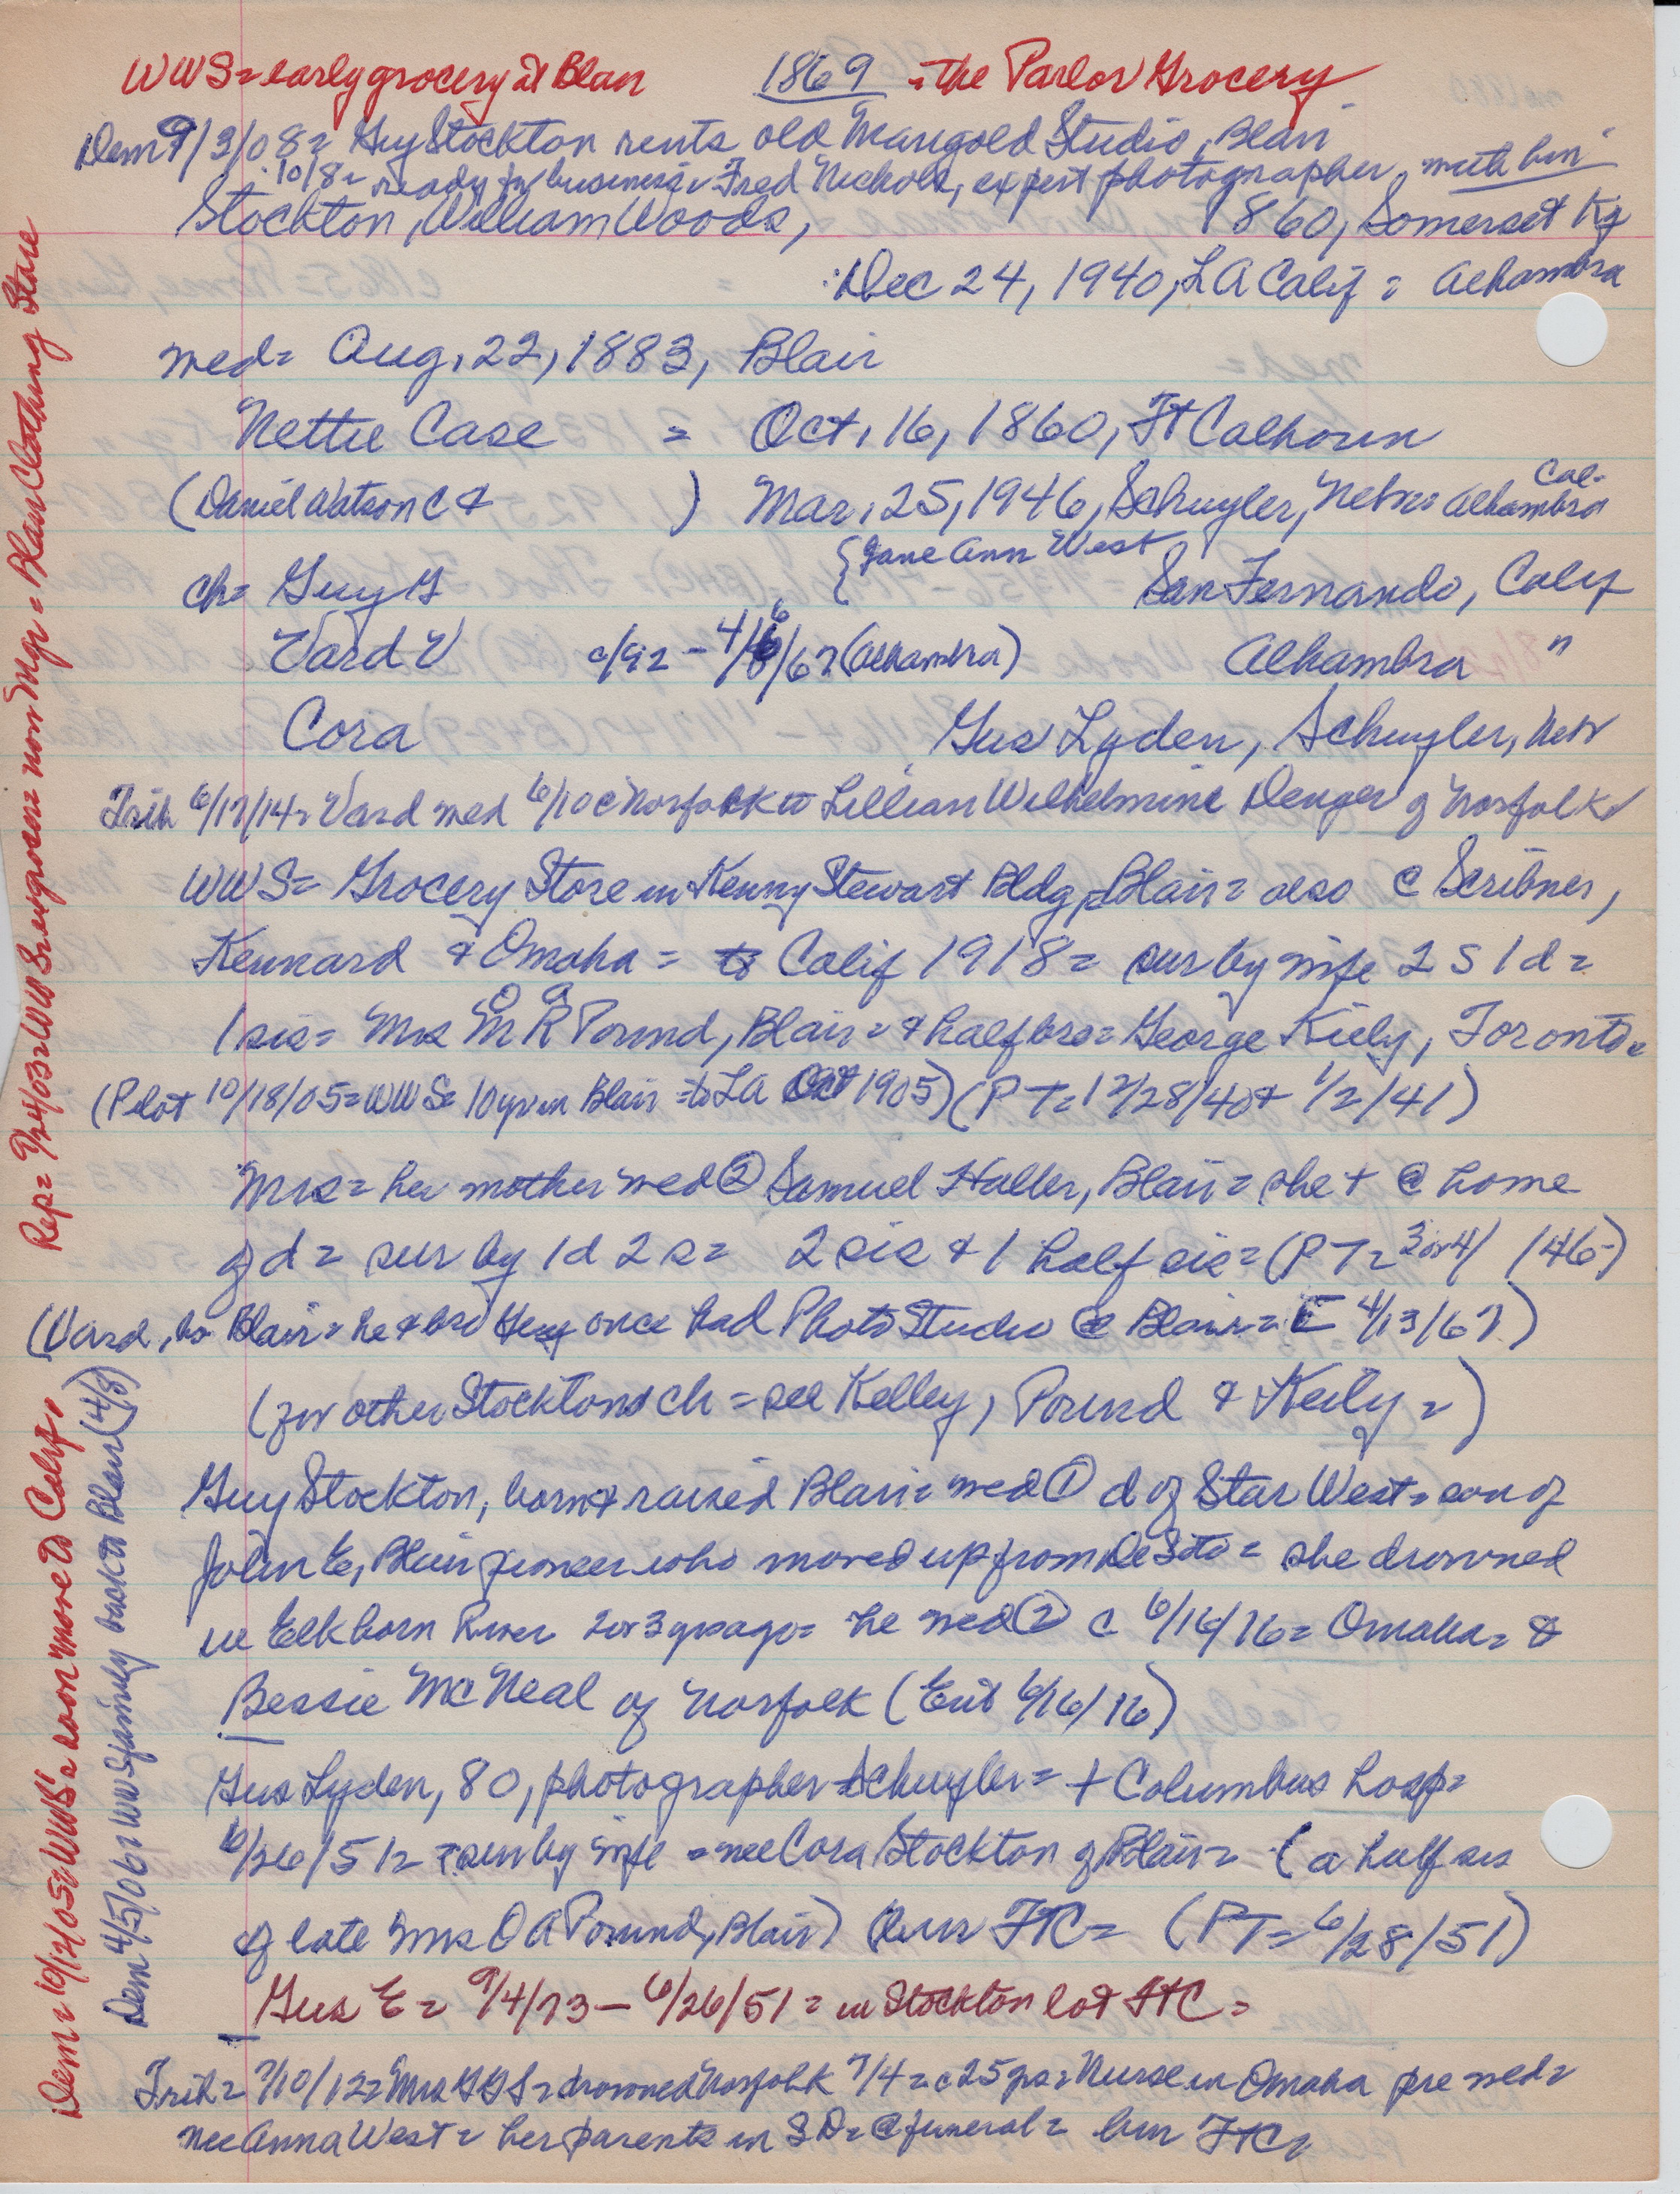 WWS= early grocery at Blair 1869 = the Parlor Grocery
Dem 9/3/08= Guy Stockton rents old Marigold Studio, Blair
10/8= ready for business= Fred Nichols, expert photographer, with him
Stockton, William Woods, 1860, Somerset Ky
Dec 24, 1940, LA Calif = Alhambra
med= Aug, 22, 1883, Blair
Nettie Case = Oct, 16, 1860, Ft Calhoun
(Daniel Watson C & ) Mar, 25, 1946, Schuyler, Nebr= Alhambra Cal-
{Jane Ann West
ch= Guy G San Fernando, Calif
Vard V c/92 - 4/6/67 (Alhambra) Alhambra "
Cora Gus Lyden, Schuyler, Nebr
Trib 6/17/14= Vard med 6/10 @ Norfolk to Lillian Wilhelmine Denger of Norfolk
WWS= Grocery Store in Kenny Stewart Bldg, Blair= also @ Scribner,
Kennard & Omaha = to Calif 1918= sur by wife 2 s 1 d =
1 sis= Mrs O A Pound, Blair= & half bro= George Kiely, Toronto=
(Pilot 10/18/05= WWS= 10 yrs in Blair = to LA Oct 1905) (PT= 12/28/40 & 1/2/41)
Mrs= her mother med ② Samuel Haller, Blair= she + @ home
of d = sur by 1 d 2 s = 2 sis & 1 half sis= (PT= 3 or 4/ /46-)
(Vard, bo Blair= he & bro Guy once had Photo Studio @ Blair= E 4/13/67)
(for other Stockton ch = see Kelley, Pound & Kiely =)
Guy Stockton, born & raised Blair= med ① d of Star West= son of
John E, Blair pioneer who moved up from DeSoto = she drowned
in Elkhorn River 2 or 3 yrs ago= he med ② @ 6/16/16= Omaha= &
Bessie McNeal of Norfolk (Ent 6/16/16)
Gus Lyden, 80, photographer Schuyler= + Columbus hosp=
6/26/51= sur by wife = nee Cora Stockton of Blair= (a half sis
of late Mrs O A Pound, Blair) bur FTC= (PT= 6/28/51)
Gus E = 9/4/73 - 6/26/51 = in Stockton lot FtC=
Trib= 7/10/12= Mrs GGS= drowned Norfolk 7/4= c 25 yrs= Nurse in Omaha pre med=
nee Anna West= her parents in SD= @ funeral= bur FTC=
Rep= 9/24/03= WWS now Mgr = Blair Clothing Store
Dem= 10/12/05= WWS= soon move to Calif=
Dem 4/5/06= WWS family back to Blair (4/3)